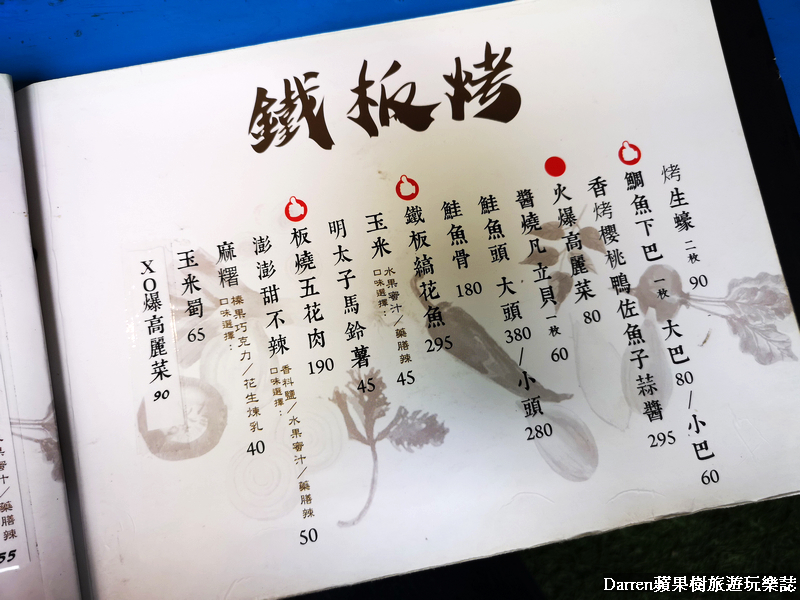 鐵板烤
烤生蠔 二枚 90
鯛魚下巴 一枚 大巴 80/小巴 60
香烤櫻桃鴨佐魚子蒜醬 295
火爆高麗菜 80
醬燒凡立貝 一枚 60
鮭魚頭 大頭 380/小頭 280
鮭魚骨 180
鐵板縞花魚 295
玉米 口味選擇：水果蜜汁/藥膳辣 45
明太子馬鈴薯 45
板燒五花肉 190
澎澎甜不辣 口味選擇：香料鹽/水果蜜汁/藥膳辣 50
麻糬 口味選擇：榛果巧克力/花生煉乳 40
玉米蜀 65
XO爆高麗菜 90
水果蜜汁/藥膳辣
55
Darren蘋果樹旅遊玩樂誌